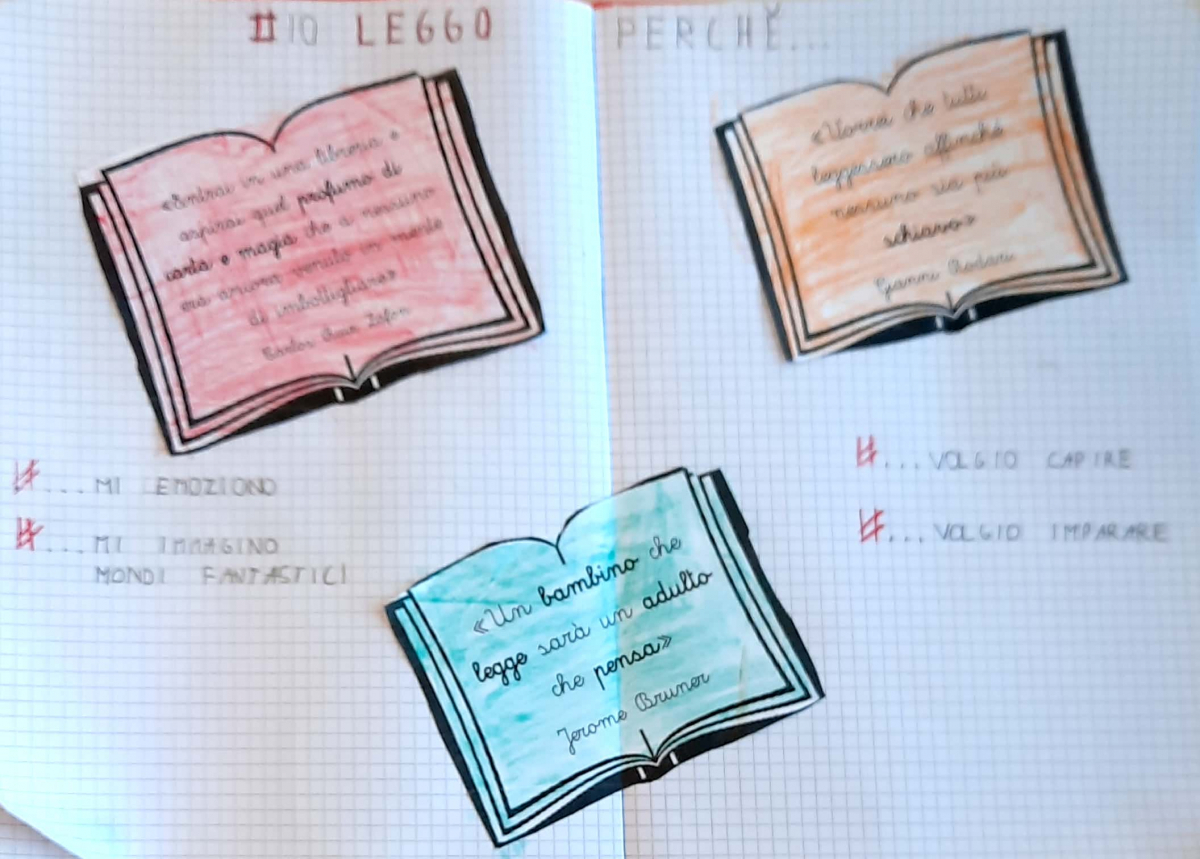 #IO LEGGO PERCHÈ...
«Entrai in una libreria e
aspirai quel profumo di
carta e magia che a nessuno
era ancora venuto in mente
di imbottigliare»
Carlos Ruiz Zafon
«Vorrei che tutti
leggessero affinché
nessuno sia più
schiavo»
Gianni Rodari
#...MI EMOZIONO
#...MI IMMAGINO
MONDI FANTASTICI
«Un bambino che
legge sarà un adulto
che pensa»
Jerome Bruner
#...VOLGIO CAPIRE
#...VOLGIO IMPARARE